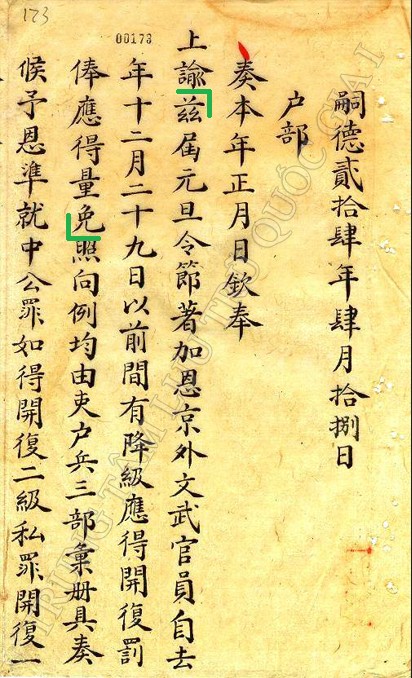 173
00173
嗣德貳拾肆年肆月拾捌日
户部
奏本年正月日欽奉
上諭茲届元旦令節著加恩京外文武官員自去
年十二月二十九日以前間有降級應得開復罰
俸應得量免照向例均由吏户兵三部彙册具奏
候予恩準就中公罪如得開復二級私罪開復一
TRUNG TÂM LƯU TRỮ QUỐC GIA I